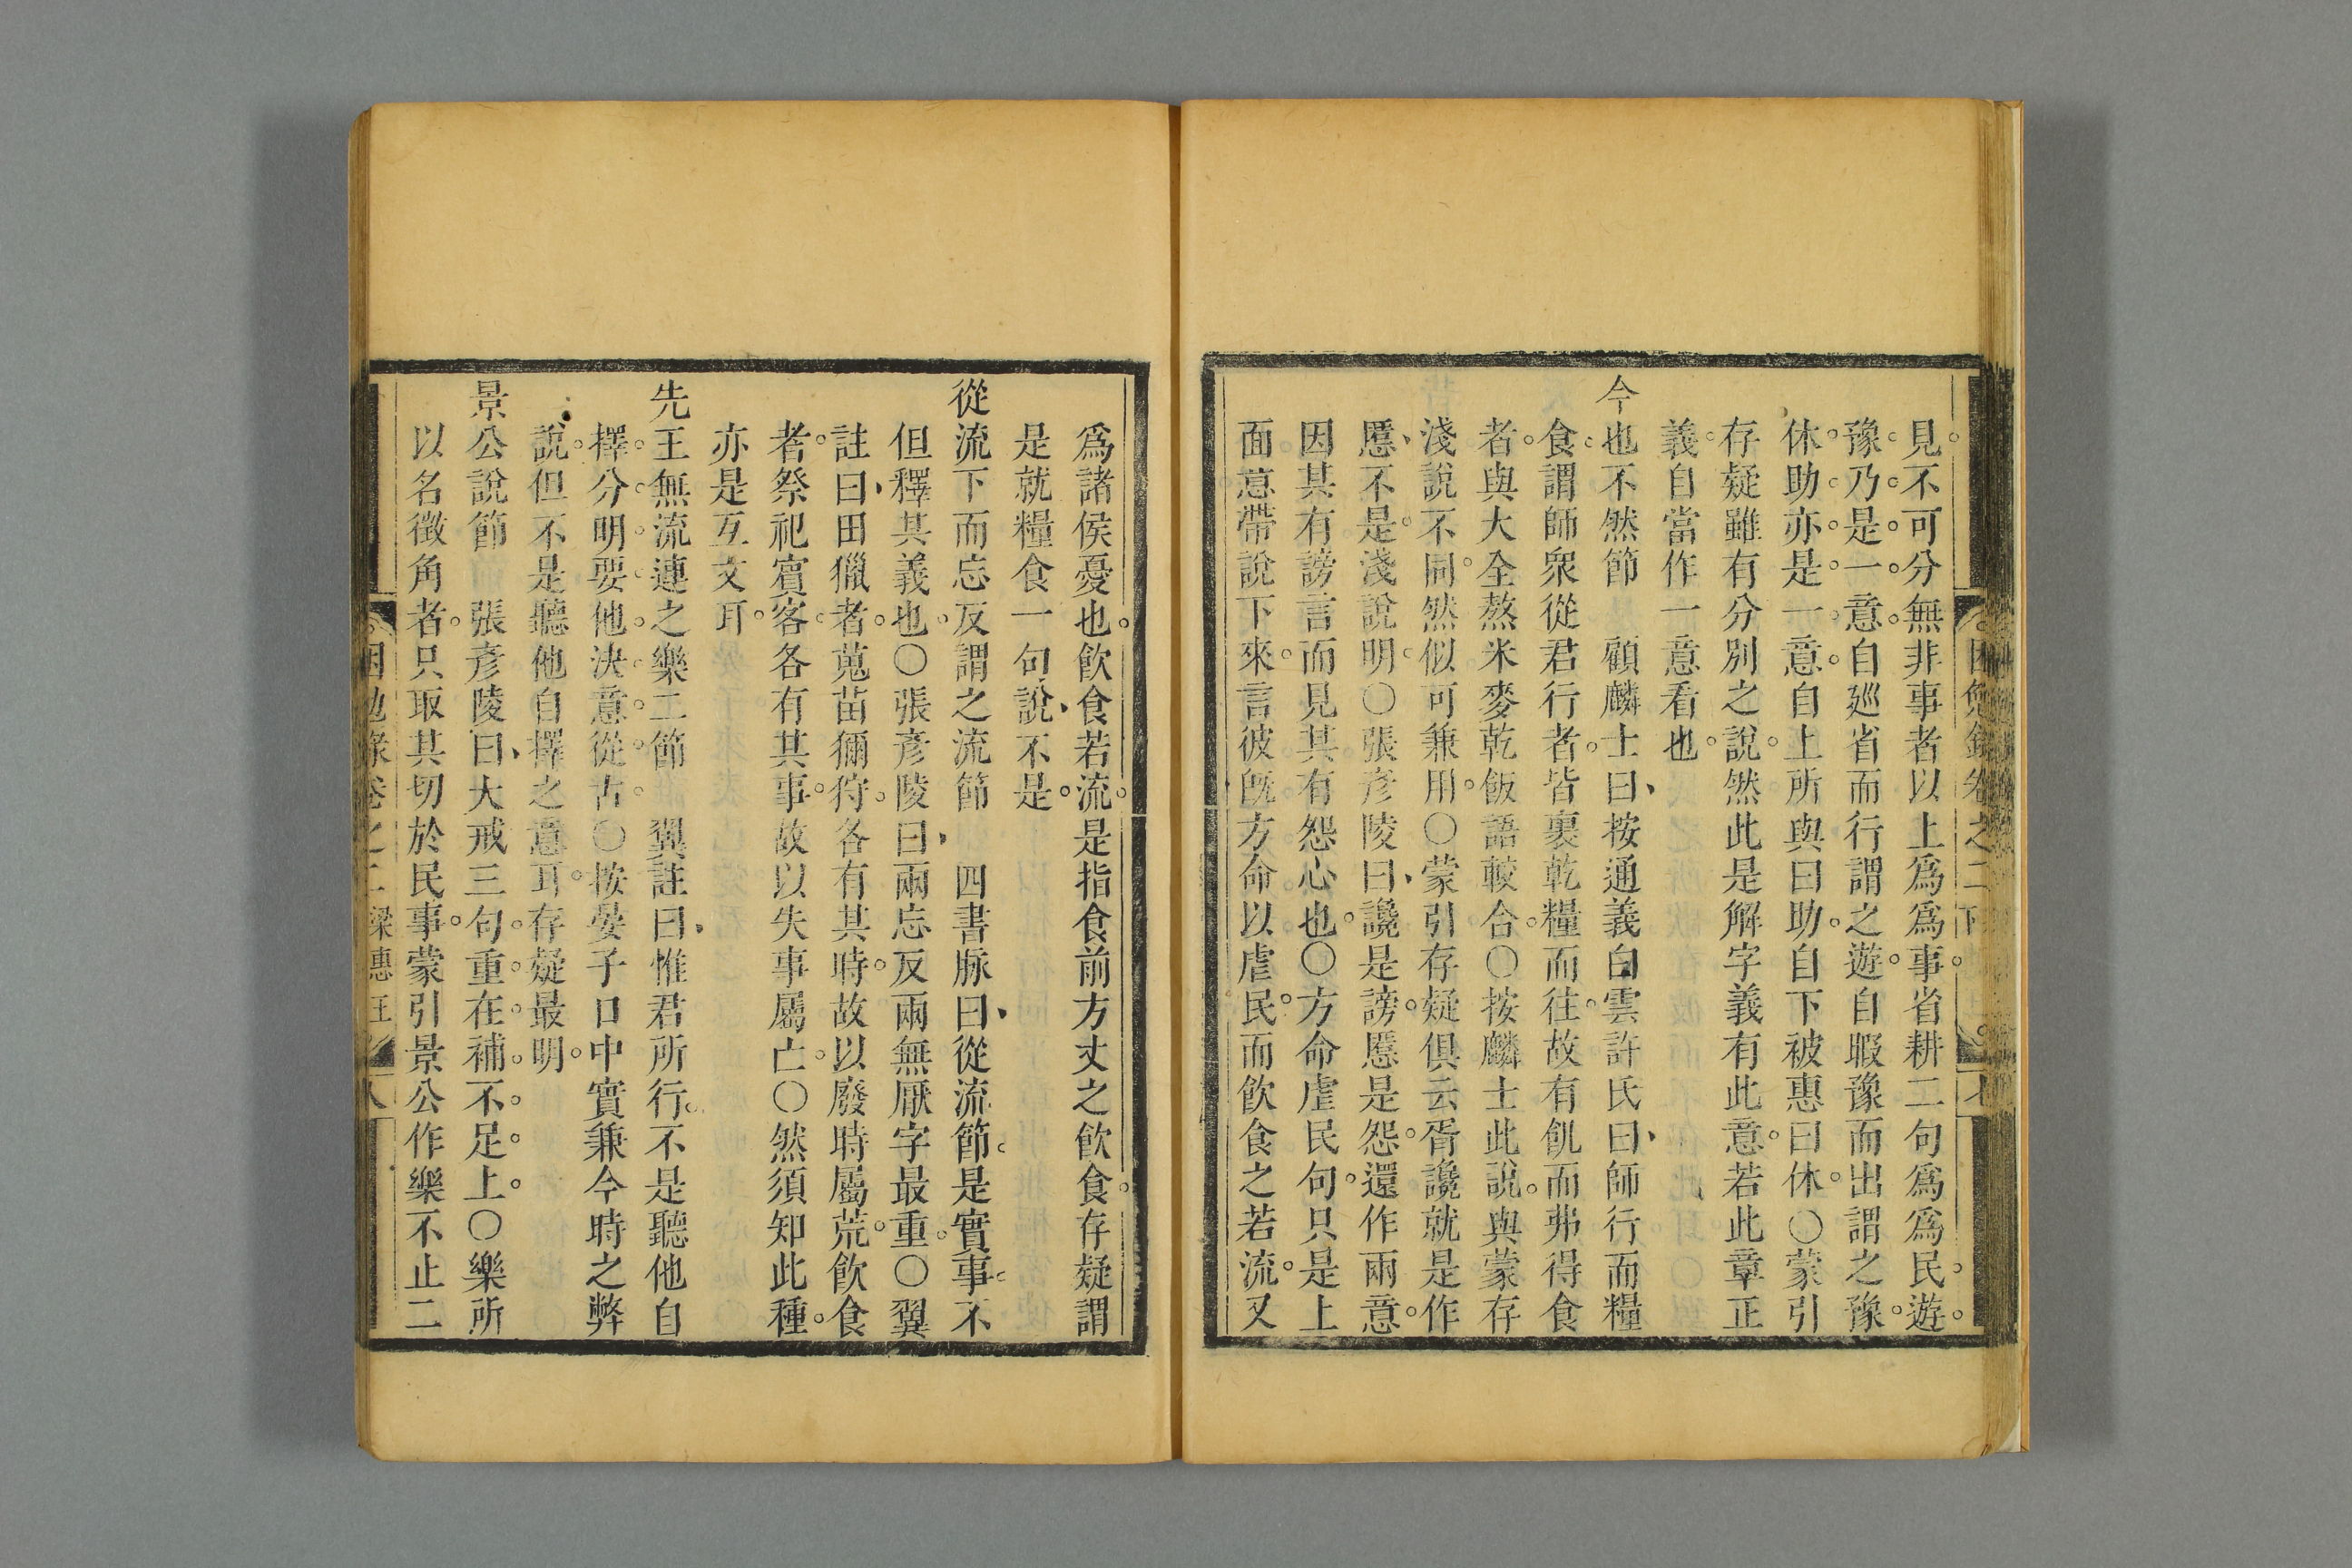 見不可分無非事者以上爲爲事省耕二句爲爲民遊
豫乃是一意自廵省而行謂之遊自暇豫而出謂之豫
休助亦是一意自上所與曰助自下被惠曰休○蒙引
存疑雖有分別之說然此是解字義有此意若此章正
義自當作一意看也
今也不然節 顧麟士曰按通義白雲許氏曰師行而糧
食謂師衆從君行者皆裹乾糧而往故有飢而弗得食
者與大全熬米麥乾飯語較合○按麟士此說與蒙存
淺說不同然似可兼用○蒙引存疑俱云胥讒就是作
慝不是淺說明○張彥陵曰讒是謗慝是怨還作兩意
因其有謗言而見其有怨心也○方命虐民句只是上
面意帶說下來言彼旣方命以虐民而飮食之若流又
爲諸侯憂也飮食若流是指食前方丈之飮食存疑謂
是就糧食一句說不是
從流下而忘反謂之流節 四書脉曰從流節是實事不
但釋其義也○張彥陵曰兩忘反兩無厭字最重○翼
註曰田獵者蒐苗獮狩各有其時故以廢時屬荒飮食
者祭祀賓客各有其事故以失事屬亡○然須知此種
亦是互文耳
先王無流連之樂二節 翼註曰惟君所行不是聽他自
擇分明要他決意從古○按晏子口中實兼今時之弊
說但不是聽他自擇之意耳存疑最明
景公說節 張彥陵曰大戒三句重在補不足上○樂所
以名徵角者只取其切於民事蒙引景公作樂不止二
困勉錄卷之二 梁惠王 八